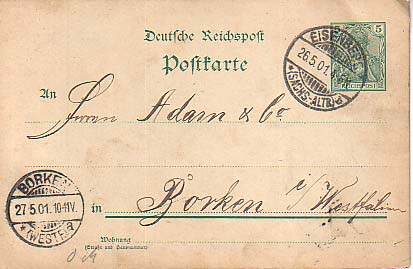 Deutsche Reichspost
Postkarte
5
REICHSPOST
EISENBERG
26.5.01.
*(SACHS.-ALTB.)
An
Herrn Adam & Co
BORKEN
27.5.01.10-11V.
*(WESTF.)a
in Borken i/Westfalen
Wohnung
(Straße und Hausnummer)